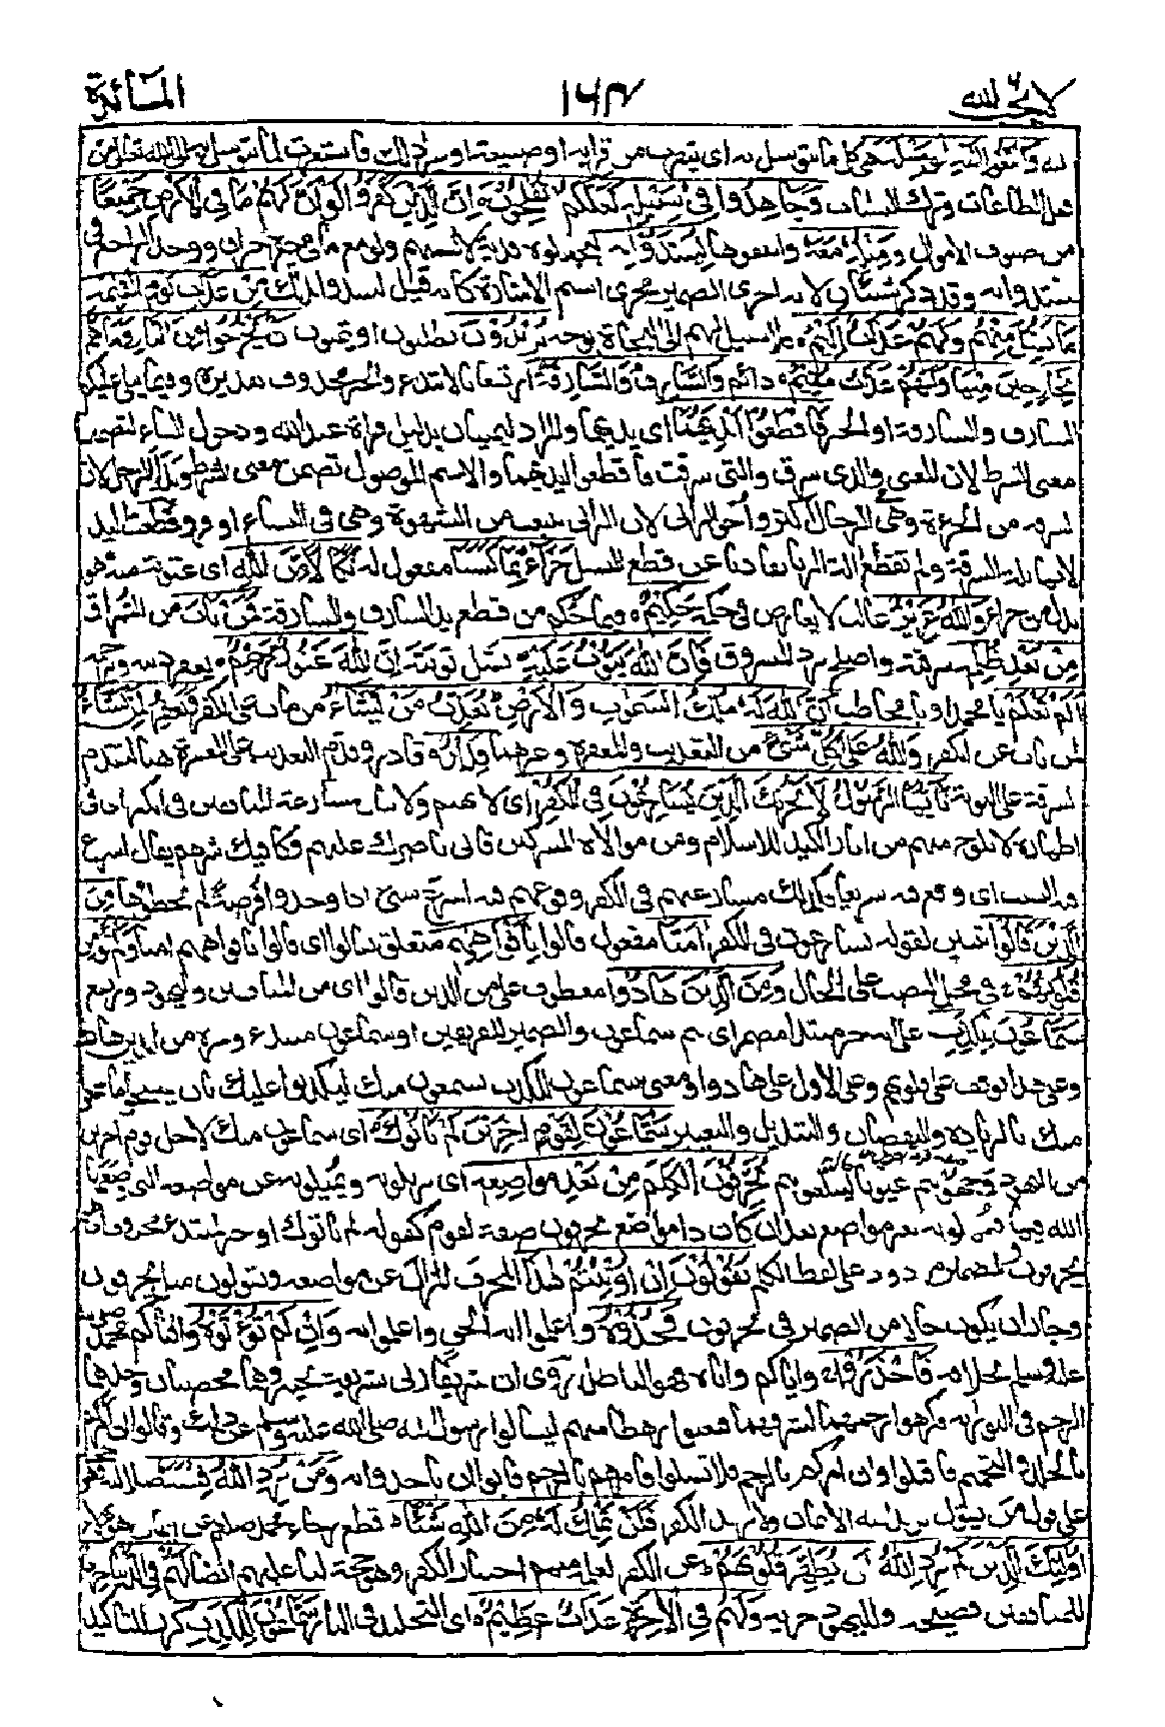 لا يحب الله ١٦٣ المائدة
وابتغوا إليه الوسيلة هي كل ما يتوسل به أى يتقرب من قرابة أو صنيعة أو غير ذلك فاستعيرت لما يتوسل به إلى الله تعالى من
فعل الطاعات وترك السيئات وَجَاهِدُوا فِي سَبِيلِهِ لَعَلَّكُمْ تُفْلِحُونَ إِنَّ الَّذِينَ كَفَرُوا لَوْ أَنَّ لَهُمْ مَا فِي الْأَرْضِ جَمِيعًا
من صنوف الأموال وَمِثْلَهُ مَعَهُ وأنفقوها لِيَفْتَدُوا بِهِ
ووحد الراجع فى
ليفتدوا به وقد ذكر شيئان لأنه أجرى الضمير مجرى اسم الإشارة كأنه قيل ليفتدوا بذلك مِنْ عَذَابِ يَوْمِ الْقِيَامَةِ
مَا تُقُبِّلَ مِنْهُمْ وَلَهُمْ عَذَابٌ أَلِيمٌ فلا سبيل لهم إلى النجاة بوجه يُرِيدُونَ يطلبون أو يتمنون أَنْ يَخْرُجُوا مِنَ النَّارِ وَمَا هُمْ
بِخَارِجِينَ مِنْهَا وَلَهُمْ عَذَابٌ مُقِيمٌ دائم وَالسَّارِقُ وَالسَّارِقَةُ ارتفعا بالابتداء والخبر محذوف تقديره وفيما يتلى عليكم
السارق والسارقة أو الخبر فَاقْطَعُوا أَيْدِيَهُمَا أى يديهما والمراد اليمينان بدليل قراءة عبد الله ودخول الفاء لتضمنهما
معنى الشرط لأن المعنى والذى سرق والتى سرقت فاقطعوا أيديهما والاسم الموصول تضمن معنى الشرط وبدأ بالرجال لأن
السرقة من الجراءة وهى فى الرجال أكثر وأخر الزانى لأن الزنا ينبعث من الشهوة وهى فى النساء أوفر وقطعت اليد
لأنها آلة السرقة ولم تقطع آلة الزنا تفاديا عن قطع النسل جَزَاءً بِمَا كَسَبَا مفعول له نَكَالًا مِنَ اللَّهِ أى عقوبة منه وهو
بدل من جزاء وَاللَّهُ عَزِيزٌ غالب لا يعارض فى حكمه حَكِيمٌ فيما حكم من قطع يد السارق والسارقة فَمَنْ تَابَ من السراق
مِنْ بَعْدِ ظُلْمِهِ سرقته وأصلح برد المسروق فَإِنَّ اللَّهَ يَتُوبُ عَلَيْهِ يقبل توبته إِنَّ اللَّهَ غَفُورٌ رَحِيمٌ يغفر ذنبه ويرحمه
أَلَمْ تَعْلَمْ يا محمد أو يا مخاطب أَنَّ اللَّهَ لَهُ مُلْكُ السَّمَاوَاتِ وَالْأَرْضِ يُعَذِّبُ مَنْ يَشَاءُ من مات على الكفر وَيَغْفِرُ لِمَنْ يَشَاءُ
لمن تاب عن الكفر وَاللَّهُ عَلَى كُلِّ شَيْءٍ من التعذيب والمغفرة وغيرهما قَدِيرٌ قادر وقدم التعذيب على المغفرة هنا لتقدم
السرقة على التوبة يَا أَيُّهَا الرَّسُولُ لَا يَحْزُنْكَ الَّذِينَ يُسَارِعُونَ فِي الْكُفْرِ أى لا تهتم ولا تبال بمسارعة المنافقين فى الكفر أى فى
إظهاره لا يلوح منهم من آثار الكيد للإسلام ومن موالاة المشركين فإنى ناصرك عليهم وكافيك شرهم يقال أسرع
فيه الشيب أى وقع فيه سريعا فكذلك مسارعتهم فى الكفر وقوعهم فيه أسرع شئ إذا وجدوا فرصة لم يخطئوها مِنَ
الَّذِينَ قَالُوا تبيين لقوله يسارعون فى الكفر آمَنَّا مفعول قالوا بِأَفْوَاهِهِمْ متعلق بقالوا أى قالوا بأفواههم آمنا وَلَمْ تُؤْمِنْ
قُلُوبُهُمْ فى محل النصب على الحال وَمِنَ الَّذِينَ هَادُوا معطوف على من الذين قالوا أى من المنافقين واليهود ويرتفع
سَمَّاعُونَ لِلْكَذِبِ على أنه خبر مبتدأ مضمر أى هم سماعون والضمير للفريقين أو سماعون مبتدأ وخبره من الذين هادوا
وعلى هذا يوقف على قلوبهم وعلى الأول على هادوا ومعنى سماعون للكذب يسمعون منك ليكذبوا عليك بأن يمسخوا ما سمعوا
منك بالزيادة والنقصان والتبديل والتغيير سَمَّاعُونَ لِقَوْمٍ آخَرِينَ لَمْ يَأْتُوكَ أى سماعون منك لأجل قوم آخرين
من اليهود وجهوهم عيونا ليبلغوهم
يُحَرِّفُونَ الْكَلِمَ مِنْ بَعْدِ مَوَاضِعِهِ أى يزيلونه ويميلونه عن مواضعه التى وضعه
الله فيها فيهملونه بغير مواضع بعد أن كان ذا مواضع يحرفون صفة لقوم كقوله لم يأتوك أو خبر لمبتدأ محذوف أى هم
يحرفون والضمير مردود على لفظ الكلم يَقُولُونَ إِنْ أُوتِيتُمْ هَذَا المحرف المزال عن مواضعه ويقولون مثل يحرفون
وجاز أن يكون حالا من الضمير فى يحرفون فَخُذُوهُ واعلموا أنه الحق واعملوا به وَإِنْ لَمْ تُؤْتَوْهُ وأفتاكم محمد
عليه وسلم بخلافه فَاحْذَرُوا وإياكم وإياه فهو الباطل روى أن شريفا زنى بشريفة بخيبر وهما محصنان وحدهما
الرجم فى التوراة فكرهوا رجمهما لشرفهما فبعثوا رهطا منهم ليسألوا رسول الله صلى الله عليه وسلم عن ذلك وقالوا إن أمركم
بالجلد والتحميم فاقبلوا وإن أمركم بالرجم فلا تقبلوا فأمرهم بالرجم فأبوا أن يأخذوا به وَمَنْ يُرِدِ اللَّهُ فِتْنَتَهُ ضلالته
فَلَنْ تَمْلِكَ لَهُ مِنَ اللَّهِ شَيْئًا قطع رجاء محمد صلعم عن إيمان هؤلاء
أُولَئِكَ الَّذِينَ لَمْ يُرِدِ اللَّهُ أَنْ يُطَهِّرَ قُلُوبَهُمْ عن الكفر لعلمه منهم اختيار الكفر وهو حجة لنا عليهم أيضا لَهُمْ فِي الدُّنْيَا خِزْيٌ
للمنافقين فضيحة ولليهود جزية وَلَهُمْ فِي الْآخِرَةِ عَذَابٌ عَظِيمٌ أى التخليد فى النار سَمَّاعُونَ لِلْكَذِبِ كرر للتأكيد